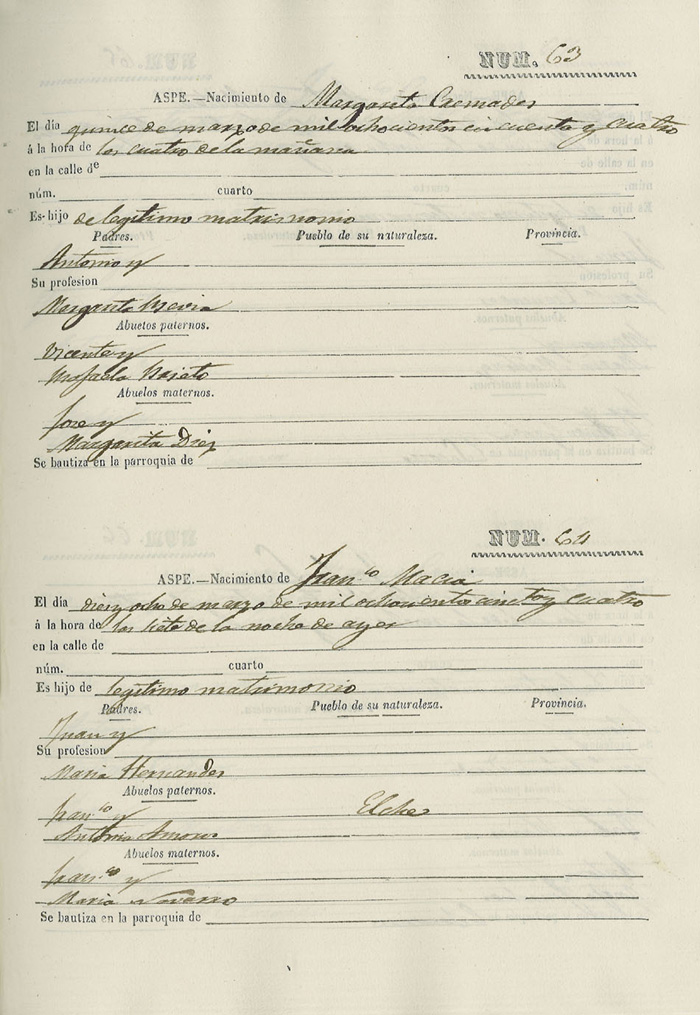 NUM. 63
ASPE.—Nacimiento de Margarita Cremades
El día quince de marzo de mil ochocientos cincuenta y cuatro
á la hora de las cuatro de la mañana
en la calle de
núm. cuarto
Es hijo de legitimo matrimonio
Padres. Pueblo de su naturaleza. Provincia.
Antonio y
Su profesion
Margarita
Abuelos paternos.
Vicente y
Rafaela
Abuelos maternos.
Jose y
Margarita Diez
Se bautiza en la parroquia de
NUM. 64
ASPE.—Nacimiento de Fran.co Macia
El día diez y ocho de marzo de mil ochocientos cinc.ta y cuatro
á la hora de las siete de la noche de ayer
en la calle de
núm. cuarto
Es hijo de legitimo matrimonio
Padres. Pueblo de su naturaleza. Provincia.
Juan y
Su profesion
Maria Hernandes
Abuelos paternos.
Fran.co y Elche
Antonia Amoros
Abuelos maternos.
Fran.co y
Maria Navarro
Se bautiza en la parroquia de